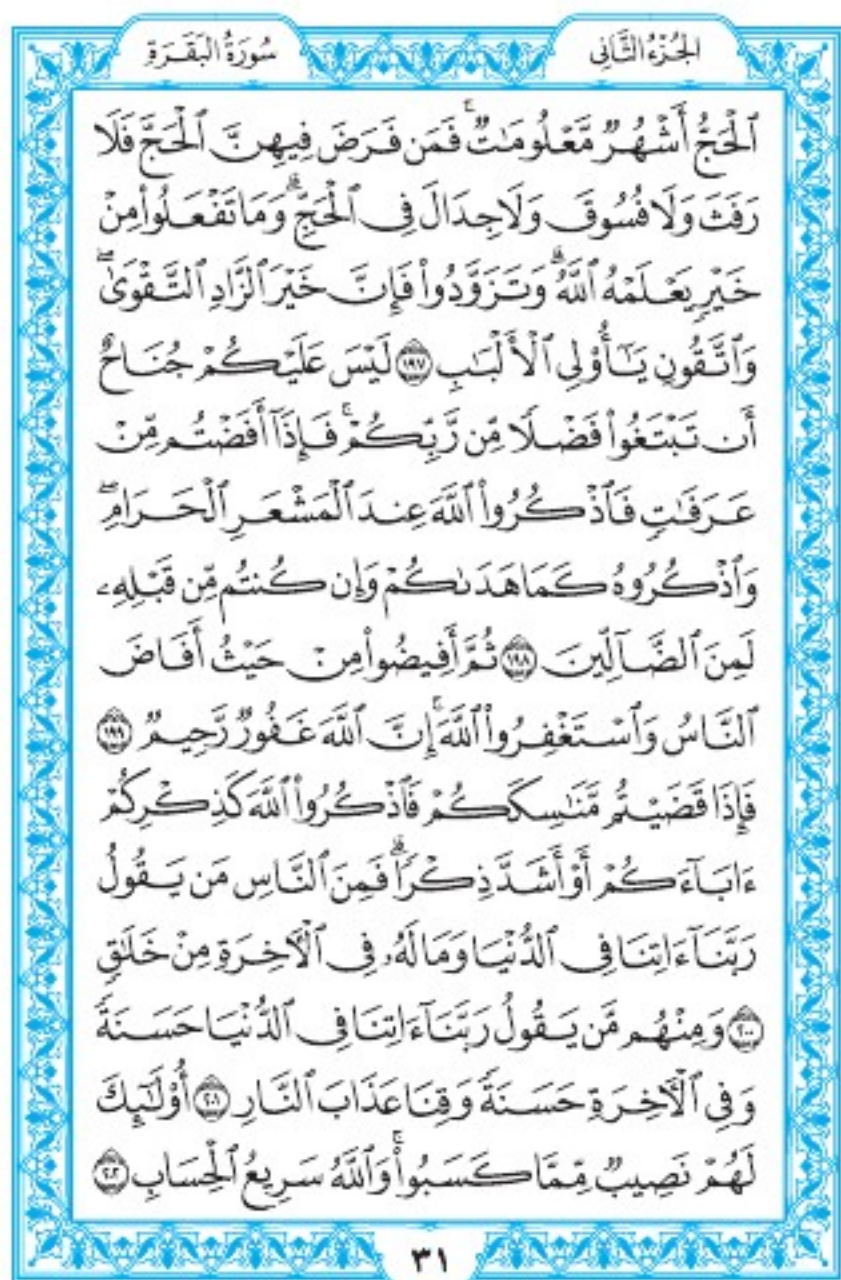 سُورَةُ البَقَرَةِ الجُزْءُ الثَّانِي
ٱلْحَجُّ أَشْهُرٌ مَّعْلُومَٰتٌ ۚ فَمَن فَرَضَ فِيهِنَّ ٱلْحَجَّ فَلَا
رَفَثَ وَلَا فُسُوقَ وَلَا جِدَالَ فِى ٱلْحَجِّ ۗ وَمَا تَفْعَلُوا۟ مِنْ
خَيْرٍ يَعْلَمْهُ ٱللَّهُ ۗ وَتَزَوَّدُوا۟ فَإِنَّ خَيْرَ ٱلزَّادِ ٱلتَّقْوَىٰ ۖ
وَٱتَّقُونِ يَٰٓأُو۟لِى ٱلْأَلْبَٰبِ ١٩٧ لَيْسَ عَلَيْكُمْ جُنَاحٌ
أَن تَبْتَغُوا۟ فَضْلًا مِّن رَّبِّكُمْ ۚ فَإِذَآ أَفَضْتُم مِّنْ
عَرَفَٰتٍ فَٱذْكُرُوا۟ ٱللَّهَ عِندَ ٱلْمَشْعَرِ ٱلْحَرَامِ ۖ
وَٱذْكُرُوهُ كَمَا هَدَىٰكُمْ وَإِن كُنتُم مِّن قَبْلِهِۦ
لَمِنَ ٱلضَّآلِّينَ ١٩٨ ثُمَّ أَفِيضُوا۟ مِنْ حَيْثُ أَفَاضَ
ٱلنَّاسُ وَٱسْتَغْفِرُوا۟ ٱللَّهَ ۚ إِنَّ ٱللَّهَ غَفُورٌ رَّحِيمٌ ١٩٩
فَإِذَا قَضَيْتُم مَّنَٰسِكَكُمْ فَٱذْكُرُوا۟ ٱللَّهَ كَذِكْرِكُمْ
ءَابَآءَكُمْ أَوْ أَشَدَّ ذِكْرًا ۗ فَمِنَ ٱلنَّاسِ مَن يَقُولُ
رَبَّنَآ ءَاتِنَا فِى ٱلدُّنْيَا وَمَا لَهُۥ فِى ٱلْءَاخِرَةِ مِنْ خَلَٰقٍ
٢٠٠ وَمِنْهُم مَّن يَقُولُ رَبَّنَآ ءَاتِنَا فِى ٱلدُّنْيَا حَسَنَةً
وَفِى ٱلْءَاخِرَةِ حَسَنَةً وَقِنَا عَذَابَ ٱلنَّارِ ٢٠١ أُو۟لَٰٓئِكَ
لَهُمْ نَصِيبٌ مِّمَّا كَسَبُوا۟ ۚ وَٱللَّهُ سَرِيعُ ٱلْحِسَابِ ٢٠٢
٣١